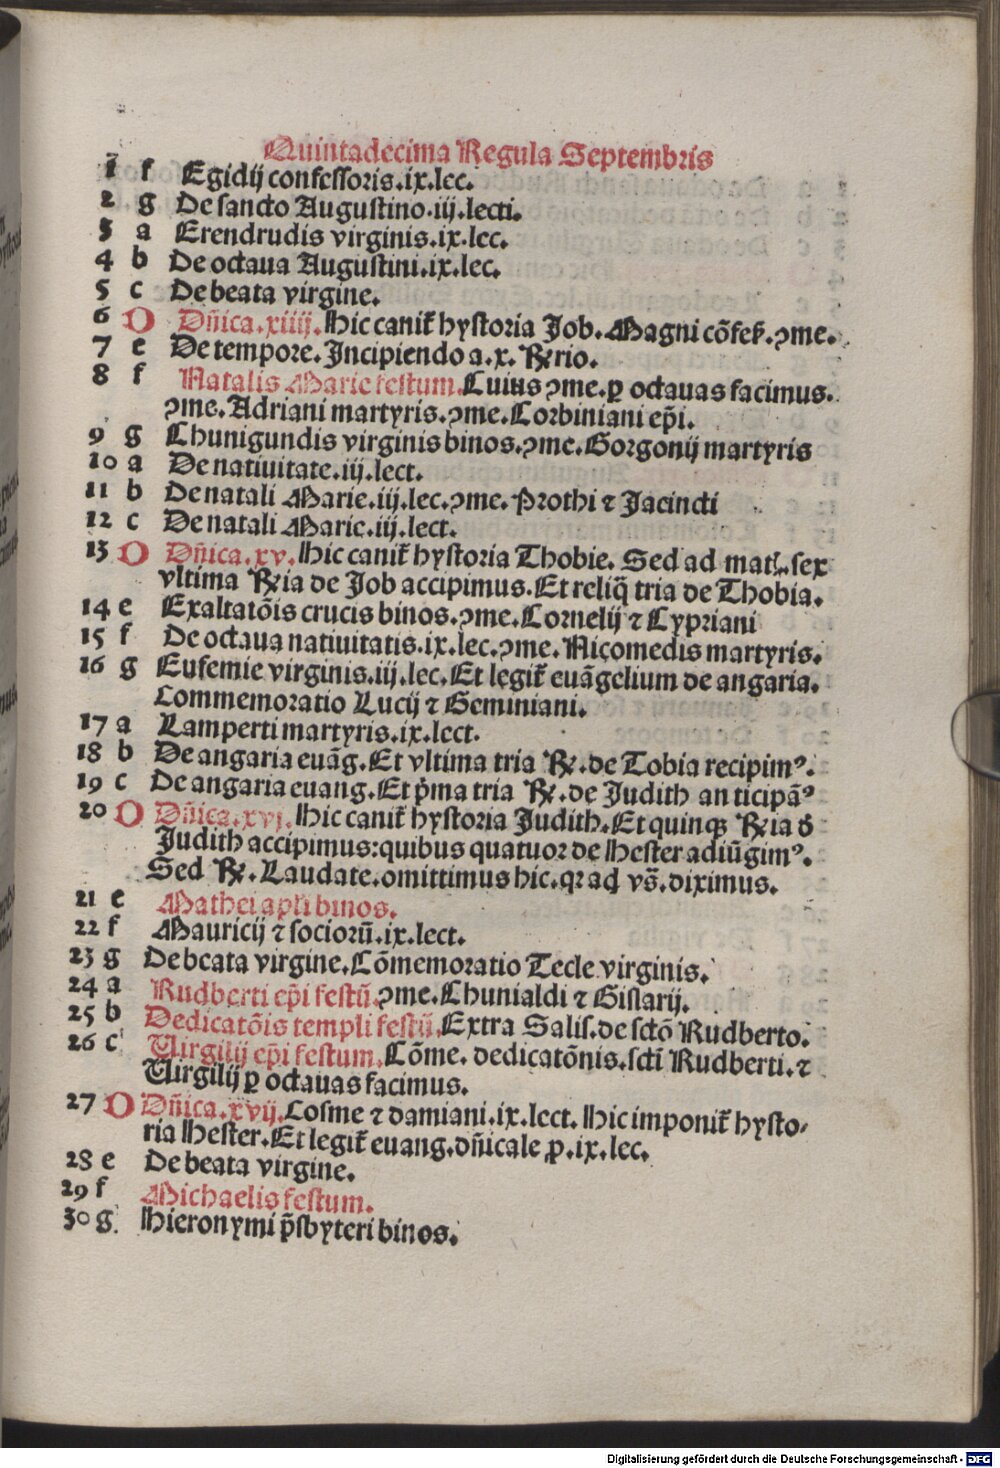 Quintadecima Regula Septembris
1 f Egidij confessoris.ix.lec.
2 g De sancto Augustino.iij.lecti.
3 a Erendrudis virginis.ix.lec.
4 b De octaua Augustini.ix.lec.
5 c De beata virgine.
6 D Dñica.xiiij.Hic canit᷑ hystoria Job.Magni cõfes̃.ꝯme.
7 e De tempore.Incipiendo a.x.℞rio.
8 f Natalis Marie festum.Cuius ꝯme.ꝑ octauas facimus.
ꝯme.Adriani martyris.ꝯme.Corbiniani ep̃i.
9 g Chunigundis virginis binos.ꝯme.Gorgonij martyris
10 a De natiuitate.iij.lect.
11 b De natali Marie.iij.lec.ꝯme.Prothi ⁊ Jacincti
12 c De natali Marie.iij.lect.
13 D Dñica.xv.Hic canit᷑ hystoria Thobie. Sed ad mat̃.sex
vltima ℞ia de Job accipimus.Et reliq̃ tria de Thobia.
14 e Exaltatõis crucis binos.ꝯme.Cornelij ⁊ Cypriani
15 f De octaua natiuitatis.ix.lec.ꝯme.Nicomedis martyris.
16 g Eufemie virginis.iij.lec.Et legit᷑ euãgelium de angaria.
Commemoratio Lucij ⁊ Geminiani.
17 a Lamperti martyris.ix.lect.
18 b De angaria euãg.Et vltima tria ℞.de Tobia recipimꝰ.
19 c De angaria euang.Et p̃ma tria ℞.de Judith anticipãꝰ
20 D Dñica.xvj.Hic canit᷑ hystoria Judith.Et quinqꝫ ℞ia d̃
Judith accipimus:quibus quatuor de Hester adiũgimꝰ.
Sed ℞.Laudate.omittimus hic.qꝛ ad vs̃.diximus.
21 e Mathei apl̃i binos.
22 f Mauricij ⁊ sociorũ.ix.lect.
23 g De beata virgine.Cõmemoratio Tecle virginis.
24 a Rudberti ep̃i festũ.ꝯme.Chunialdi ⁊ Gislarij.
25 b Dedicatõis templi festũ.Extra Salis.de sctõ Rudberto.
26 c Virgilij ep̃i festum.Cõme. dedicatõnis.sctĩ Rudberti.⁊
Virgilij ꝑ octauas facimus.
27 D Dñica.xvij.Cosme ⁊ damiani.ix.lect. Hic imponit᷑ hysto-
ria Hester.Et legit᷑ euang.dñicale ꝓ.ix.lec.
28 e De beata virgine.
29 f Michaelis festum.
30 g Hieronymi p̃sbyteri binos.
Digitalisierung gefördert durch die Deutsche Forschungsgemeinschaft - DFG